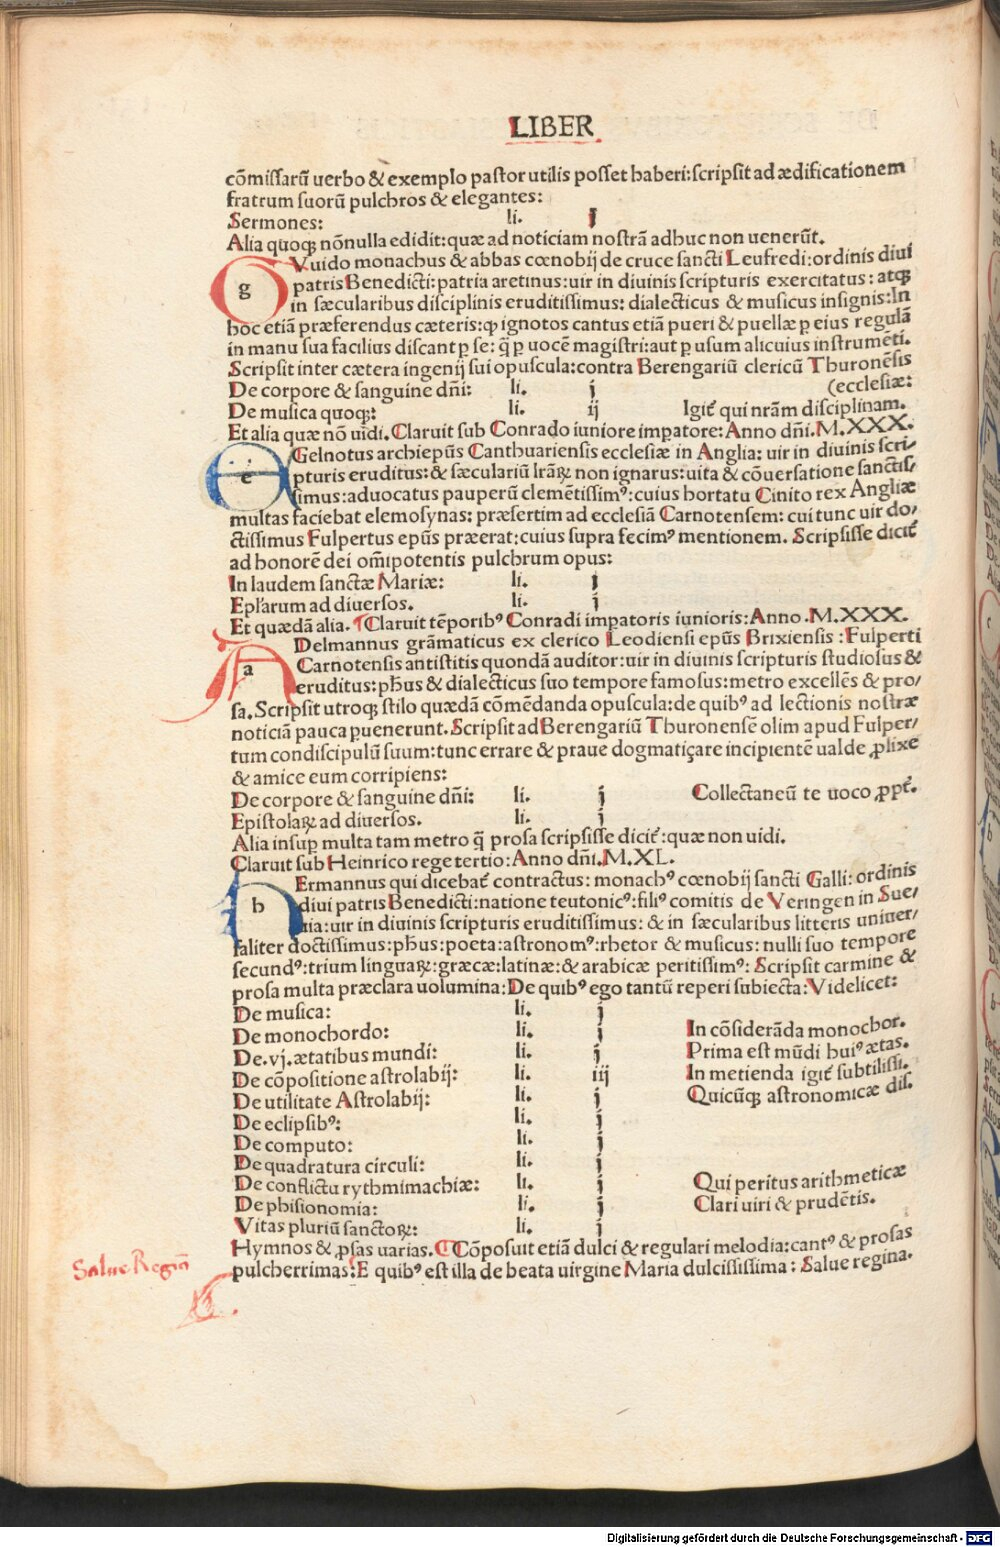 LIBER
cōmissarū uerbo & exemplo pastor utilis posset haberi: scripsit ad ædificationem
fratrum suorū pulchros & elegantes:
Sermones: li. j
Alia quoqꝫ nōnulla edidit: quæ ad noticiam nostrā adhuc non uenerūt.
g Vuido monachus & abbas cœnobij de cruce sancti Leufredi: ordinis diui
patris Benedicti: patria aretinus: uir in diuinis scripturis exercitatus: atqꝫ
in sæcularibus disciplinis eruditissimus: dialecticus & musicus insignis: In
hoc etiā præferendus cæteris: ꝙ ignotos cantus etiā pueri & puellæ ꝑ eius regulā
in manu sua facilius discant ꝑ se: q̄̄ ꝑ uocē magistri: aut ꝑ usum alicuius instrumēti.
Scripsit inter cætera ingenij sui opuscula: contra Berengariū clericū Thuronēsis
De corpore & sanguine dn̄i: li. j (ecclesiæ:
De musica quoqꝫ: li. ij Igit̄ qui nr̄am disciplinam.
Et alia quæ nō uidi. Claruit sub Conrado iuniore imꝑatore: Anno dn̄i. M.XXX.
e Gelnotus archiepūs Canthuariensis ecclesiæ in Anglia: uir in diuinis scri/
pturis eruditus: & sæculariū lr̄aꝝ non ignarus: uita & cōuersatione sanctis/
simus: aduocatus pauperū clemētissimꝰ: cuius hortatu Cinito rex Angliæ
multas faciebat elemosynas: præsertim ad ecclesiā Carnotensem: cui tunc uir do/
ctissimus Fulpertus epūs præerat: cuius supra fecimꝰ mentionem. Scripsisse dicit̄
ad honorē dei om̄ipotentis pulchrum opus:
In laudem sanctæ Mariæ: li. j
Epl̄arum ad diuersos. li. j
Et quædā alia. ¶ Claruit tēporibꝰ Conradi imꝑatoris iunioris: Anno. M.XXX.
a Delmannus grāmaticus ex clerico Leodiensi epūs Brixiensis: Fulperti
Carnotensis antistitis quondā auditor: uir in diuinis scripturis studiosus &
eruditus: ph̄us & dialecticus suo tempore famosus: metro excellēs & pro/
sa. Scripsit utroqꝫ stilo quædā cōmēdanda opuscula: de quibꝰ ad lectionis nostræ
noticiā pauca ꝑuenerunt. Scripsit ad Berengariū Thuronensē olim apud Fulper/
tum condiscipulū suum: tunc errare & praue dogmatiçare incipientē ualde ꝓlixe
& amice eum corripiens:
De corpore & sanguine dn̄i: li. j Collectaneū te uoco ꝓpt̄.
Epistolaꝝ ad diuersos. li. j
Alia insuꝑ multa tam metro q̄̄ prosa scripsisse dicit̄: quæ non uidi.
Claruit sub Heinrico rege tertio: Anno dn̄i. M.XL.
h Ermannus qui dicebat̄ contractus: monachꝰ cœnobij sancti Galli: ordinis
diui patris Benedicti: natione teutonicꝰ: filiꝰ comitis de Veringen in Sue/
uia: uir in diuinis scripturis eruditissimus: & in sæcularibus litteris uniuer/
saliter doctissimus: ph̄us: poeta: astronomꝰ: rhetor & musicus: nulli suo tempore
secundꝰ: trium linguaꝝ: græcæ: latinæ: & arabicæ peritissimꝰ: Scripsit carmine &
prosa multa præclara uolumina: De quibꝰ ego tantū reperi subiecta: Videlicet:
De musica: li. j
De monochordo: li. j In cōsiderāda monochor.
De. vj. ætatibus mundi: li. j Prima est mūdi huiꝰ ætas.
De cōpositione astrolabij: li. iij In metienda igit̄ subtilissi.
De utilitate Astrolabij: li. j Quicūqꝫ astronomicæ dis.
De eclipsibꝰ: li. j
De computo: li. j
De quadratura circuli: li. j
De conflictu rythmimachiæ: li. j Qui peritus arithmeticæ
De phisionomia: li. j Clari uiri & prudētis.
Vitas pluriū sanctoꝝ: li. j
Hymnos & ꝓsas uarias. ¶ Cōposuit etiā dulci & regulari melodia: cantꝰ & prosas
pulcherrimas: E quibꝰ est illa de beata uirgine Maria dulcississima: Salue regina.
Salue Regina
Digitalisierung gefördert durch die Deutsche Forschungsgemeinschaft - DFG